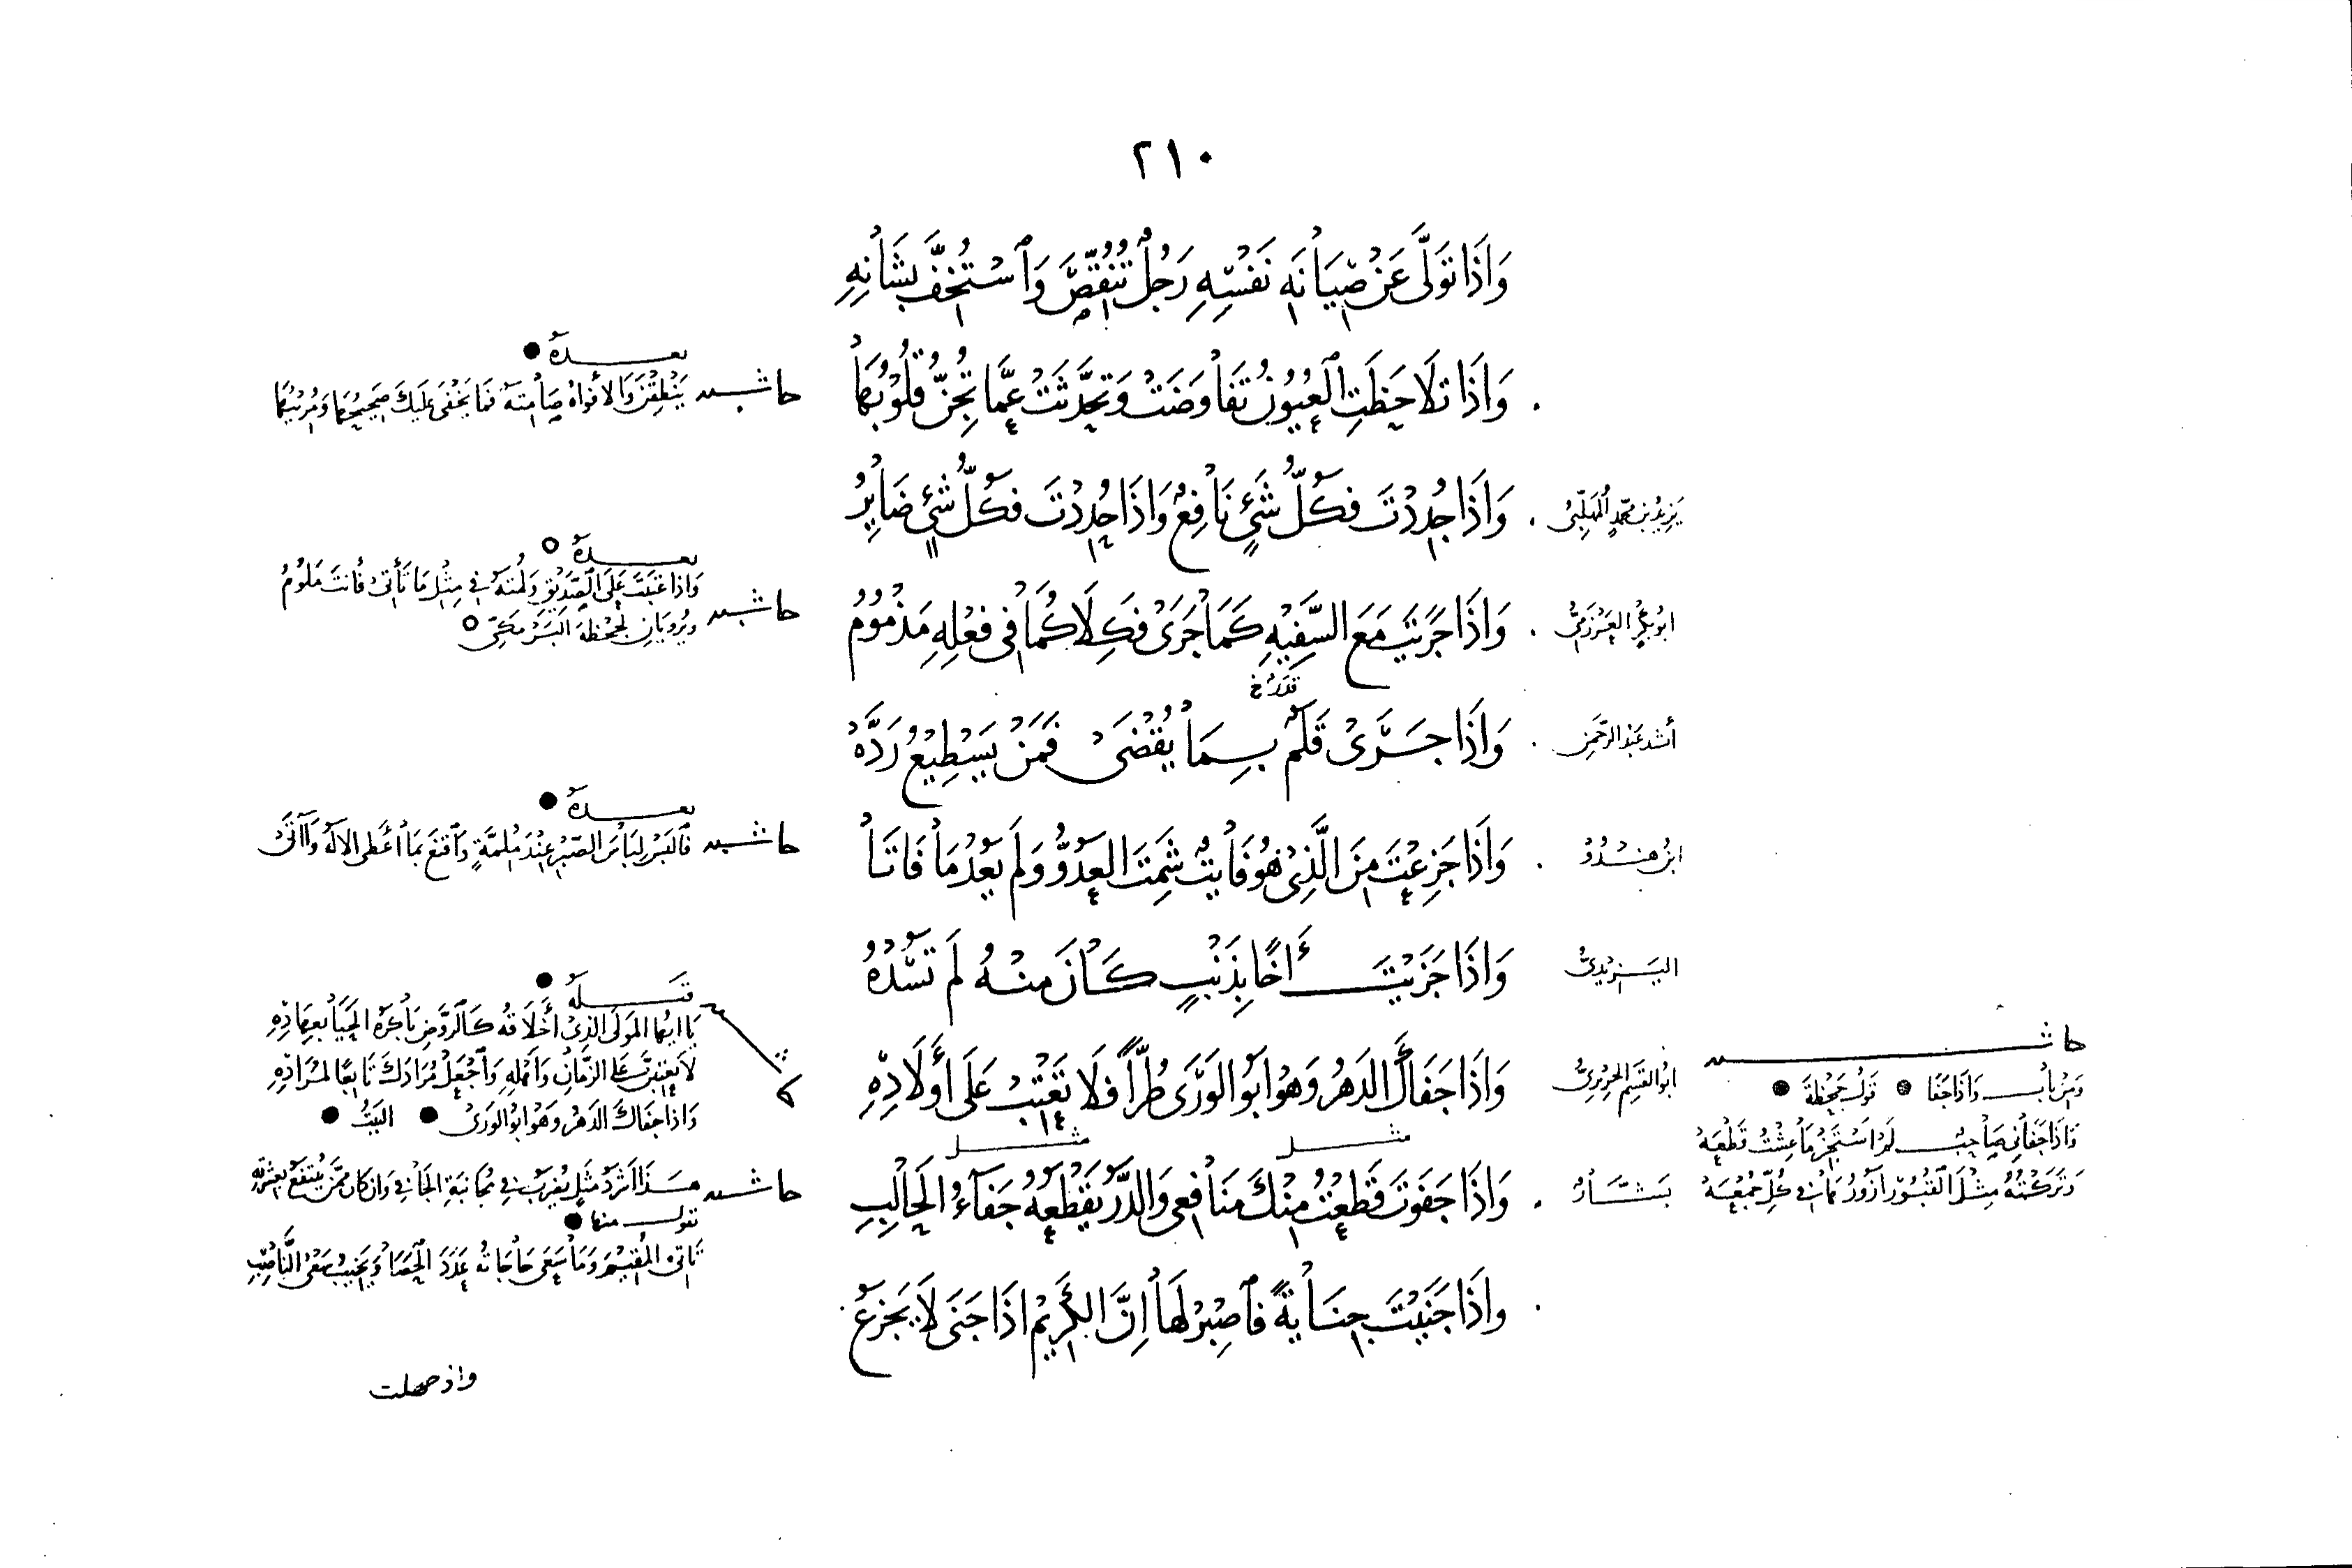 ٢١٠
وَاِذَا تَوَلَّى عَنْ صِيَانَةِ نَفْسِهِ رَجُلٌ تُنُقِّصَ وَاسْتُخِفَّ بِشَانِهِ
وَاِذَا تَلَاحَظَتِ العُيُونُ تَفَاوَضَتْ وَتَحَدَّثَتْ عَمَّا تُجِنُّ قُلُوبُهَا
حاشيه
بعده
يَنْطِقْنَ وَالأفْوَاهُ صَامِتَةٌ فَمَا يَخْفَى عَلَيكَ صَحِيحُهَا وَمُرِيبُهَا
يَزِيدُ بن محمّدٍ المُهَلَّبِىُّ
وَاِذَا جُدِدْتَ فَكُلُّ شَىْءٍ نَافِعٌ وَاِذَا حُدِدْتَ فَكُلُّ شَىْءٍ ضَايِرُ
ابُو بَكْرٍ العَرْزَمِىُّ
وَاِذَا جَرَيْتَ مَعَ السَّفِيْهِ كَمَا جَرَى فَكِلَاكُمَا فِى فِعْلِهِ مَذْمُوْمُ
حاشيه
بعده
وَاِذَا عَتَبْتَ عَلَى الصَّدِيْقِ وَلُمْتَهُ فِي مِثْلِ مَا تَأْتِى فَأَنتَ مَلُوْمُ
وَيُرْوَيَانِ لِجَحْظَةَ البَرْمَكِىِّ
أنشد عَبْدُ الرَّحْمنِ
وَاِذَا جَرَى قَلَمٌ بِمَا يُقْضَىْ فَمَنْ يَسْطِيْعُ رَدَّهْ
قدَرٌ خ
ابنُ هِنْدُوْ
وَاِذَا جَزِعْتَ مِنَ الَّذِىْ هُوَ فَايِتٌ شَمِتَ العَدُوُّ وَلَمْ يَعُدْ مَا فَاتَا
حاشيه
بعده
فَالبَسْ لِبَاسَ الصَّبْرِ عِنْدَ مُلِمَّةٍ وَاقْنَعْ بِمَا أعْطَى الالهُ وَآتَى
اليَزِيْدِىُّ
وَاِذَا جَزَيْتَ أَخًا بِذَنْبٍ كَانَ مِنْهُ لَم تَسُدْهُ
ابُو القَسِمِ الحَرِيْرِىُّ
وَاِذَا جَفَاكَ الدَهْرُ وَهْوَ ابُو الوَرَى طُرّاً فَلَا تَعْتِبْ عَلَى أَوْلَادِهِ
قَبْلَهُ
يَا ايُّهَا المَوْلَى الذِىْ أَخْلَاقُهُ كَالرَّوْضِ بَاكَرَهُ الحَيَا بِعِهَادِهِ
لَا تَعْتِبَنَّ عَلَى الزَّمَانِ وَأهْلِهِ وَاجْعَلْ مُرَادَكَ تَابِعًا لِمُرَادِهِ
وَاِذَا جَفَاكَ الدَهْرُ وَهْوَ ابُو الوَرَىْ البَيْتُ
حاشيه
وَمِنْ بَابِ وَاِذَا جَفَا قَولُ جَحْظَةَ
وَاِذَا جَفَانِى صَاحِبٌ لَمْ اسْتَجِزْ مَا عِشْتُ قَطْعَهْ
وَتَرَكْتُهُ مِثْلَ القُبُوْرِ ازُوْرُهَا فِي كُلِّ جُمْعَهْ
بَشَّارٌ
وَاِذَا جَفَوْتَ قَطَعْتُ مِنْكَ مَنَافِعِى وَالدَّرُّ يَقْطَعُهُ جَفَاءُ الحَالِبِ
مثل
مثل
حاشيه
هَذَا أشْرَدُ مَثَلٍ يُضْرَبُ فِي مُجَانَبَةِ الجَافِي وَاِنْ كَانَ مِمَّنْ يُنْتَفَعُ بِعِشْرَتِهِ
يَقولُ منها
تَاتِى المُقِيْمَ وَمَا سَعَى حَاجَاتُهُ عَدَدَ الحَصَا وَيَخِيبُ سَعْىُ النَّاصِبِ
وَاِذَا جَنَيْتَ جِنَايَةً فَاصْبِرْ لَهَا اِنَّ الكَرِيْمَ اذَا جَنَى لَا يَجْزَعُ